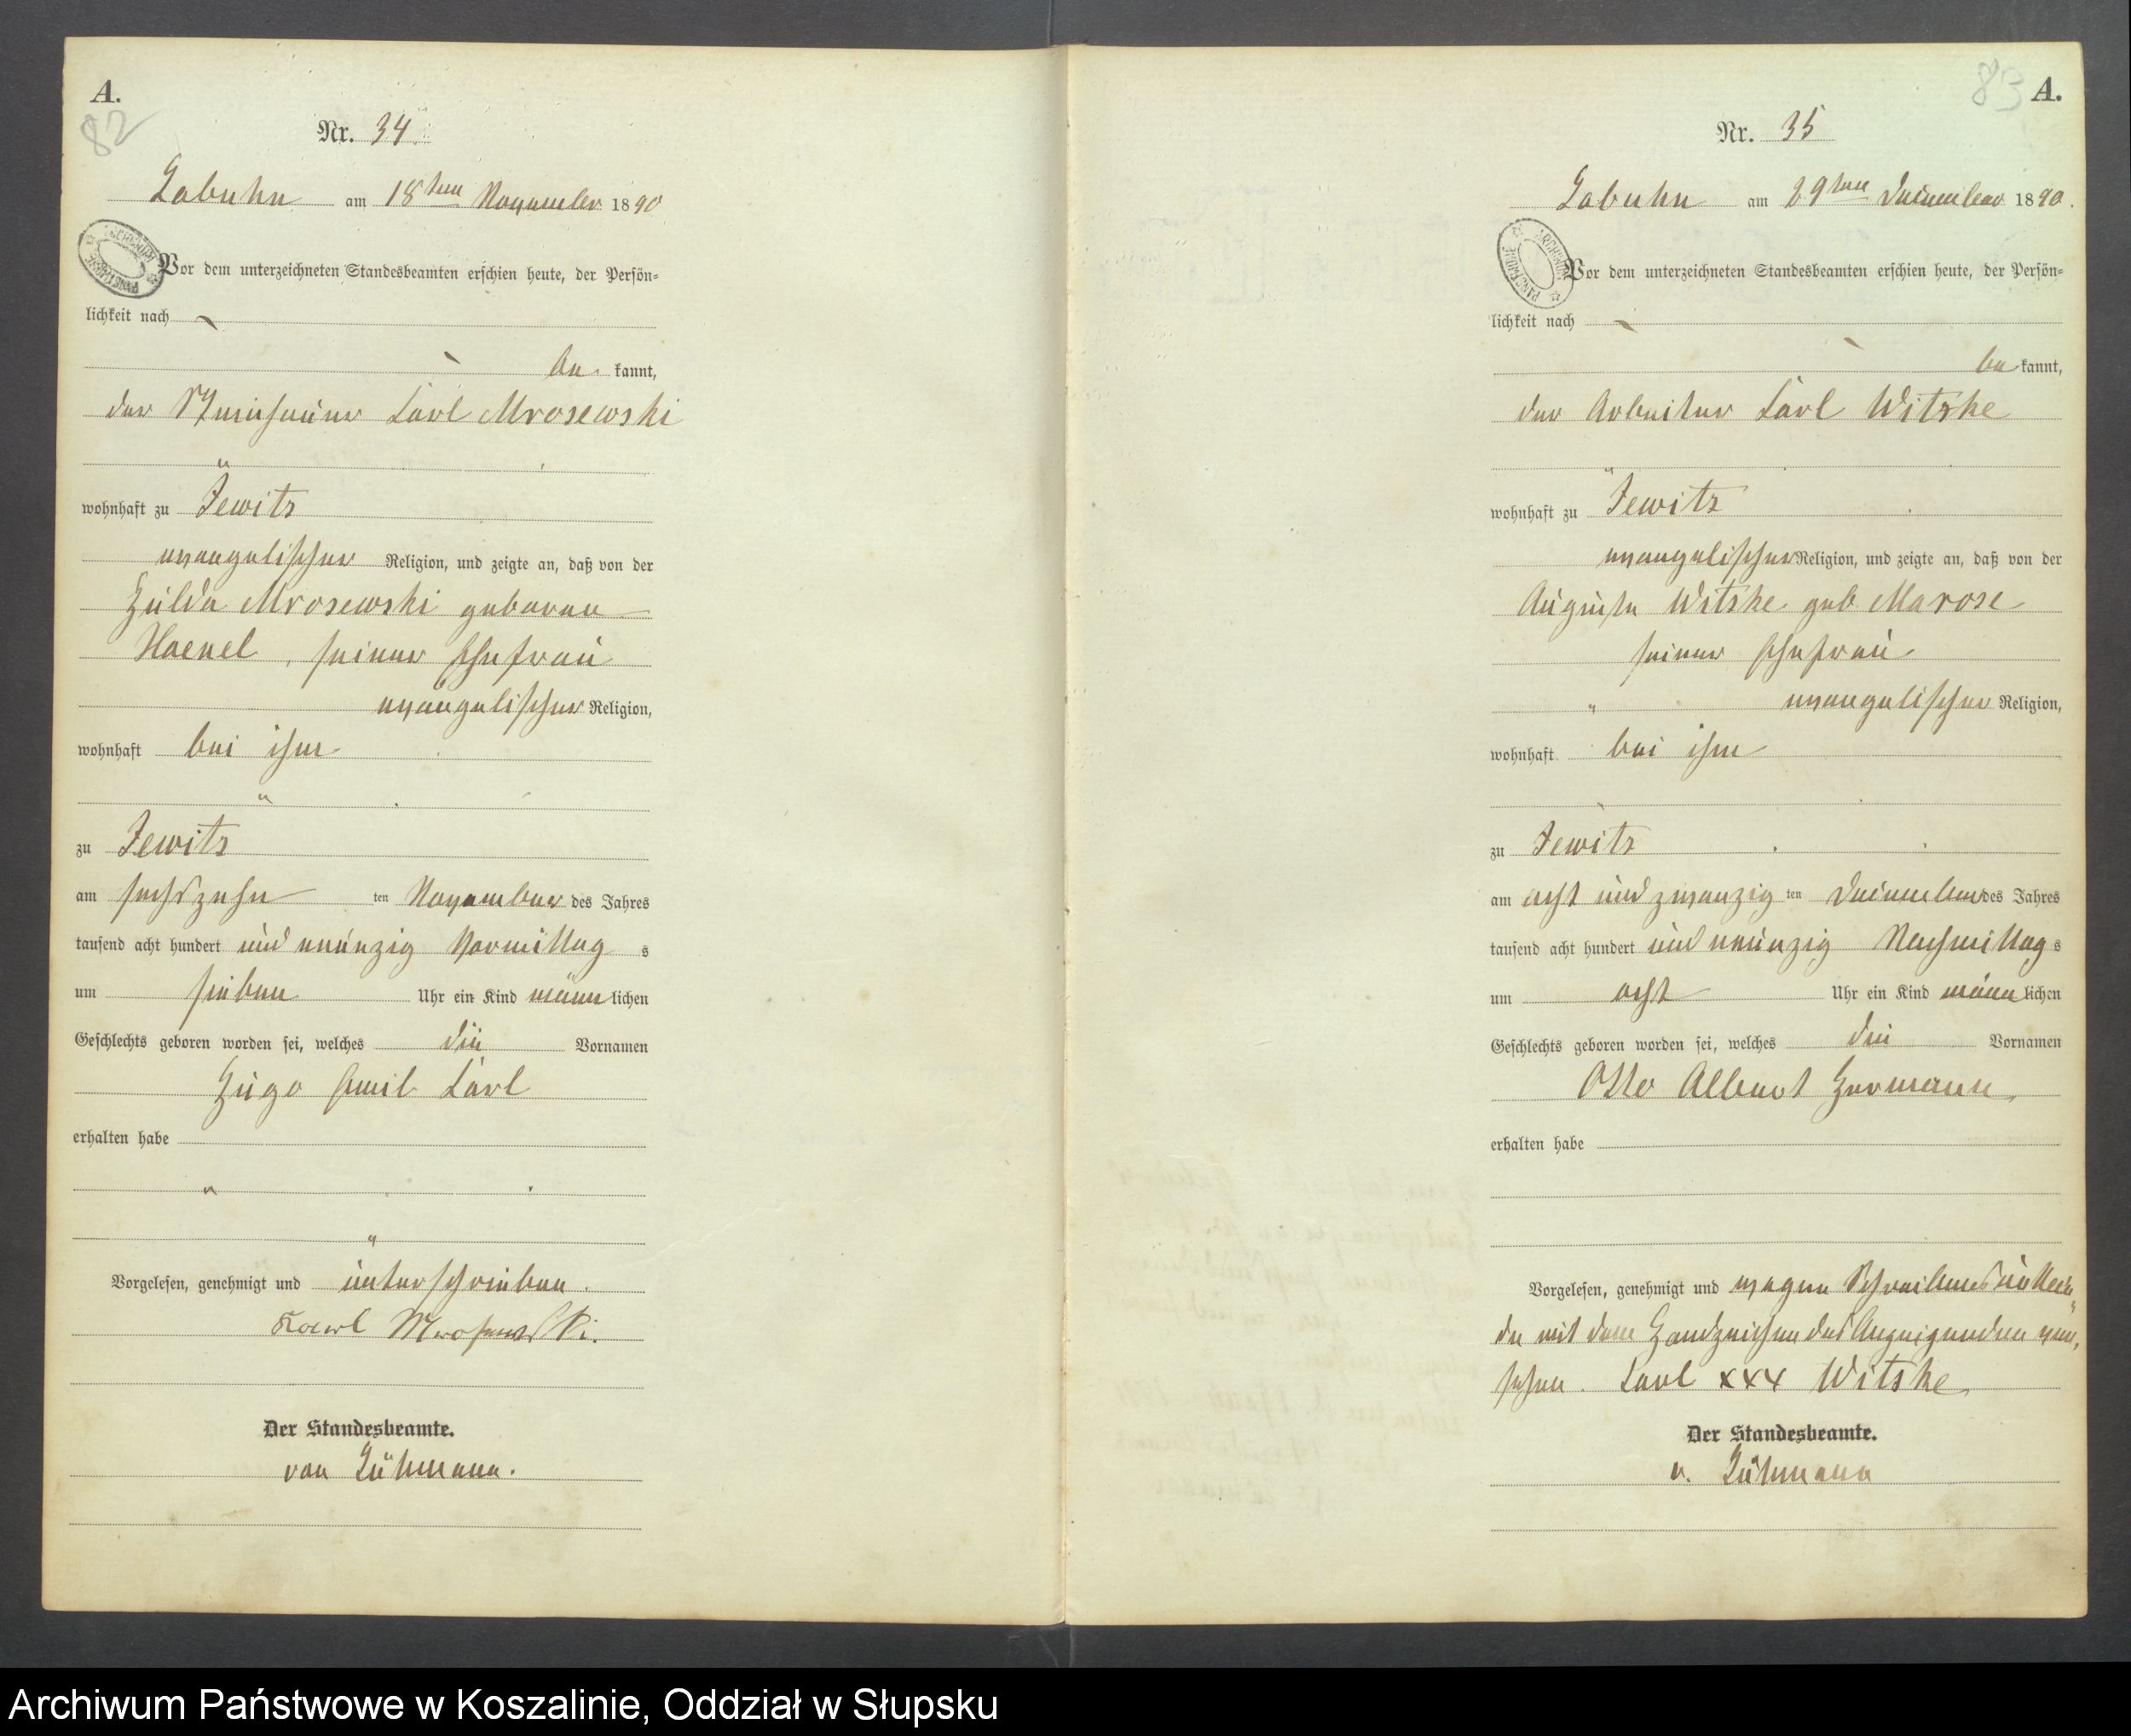 A.
82
Nr. 34
Labuhn am 18ten November 1890
Vor dem unterzeichneten Standesbeamten erschien heute, der Persön=
lichkeit nach
be kannt,
der Carl Mrosewski
wohnhaft zu Jewitz
evangelischer Religion, und zeigte an, daß von der
Hulda Mrosewski geborene
Haenel, seiner Ehefrau
evangelischer Religion,
wohnhaft bei ihm
zu Jewitz
am sechszehn ten November des Jahres
tausend acht hundert und neunzig Vormittag s
um sieben Uhr ein Kind männ lichen
Geschlechts geboren worden sei, welches die Vornamen
Hugo Emil Carl
erhalten habe
Vorgelesen, genehmigt und unterschrieben.
Karl Mrosewski.
Der Standesbeamte.
von Lühmann.
83
A.
Nr. 35
Labuhn am 29ten Dezember 1890.
Vor dem unterzeichneten Standesbeamten erschien heute, der Persön=
lichkeit nach
be kannt,
der Arbeiter Carl Witzke
wohnhaft zu Jewitz
evangelischer Religion, und zeigte an, daß von der
Auguste Witzke geb Marose
seiner Ehefrau
evangelischer Religion,
wohnhaft bei ihm
zu Jewitz
am acht und zwanzig ten Dezember des Jahres
tausend acht hundert und neunzig Nachmittag s
um acht Uhr ein Kind männ lichen
Geschlechts geboren worden sei, welches die Vornamen
Otto Albert Hermann,
erhalten habe
Vorgelesen, genehmigt und wegen Schreibens
de mit dem Handzeichen des Anzeigenden ver,
sehen. Carl xxx Witzke
Der Standesbeamte.
v. Lühmann
Archiwum Państwowe w Koszalinie, Oddział w Słupsku